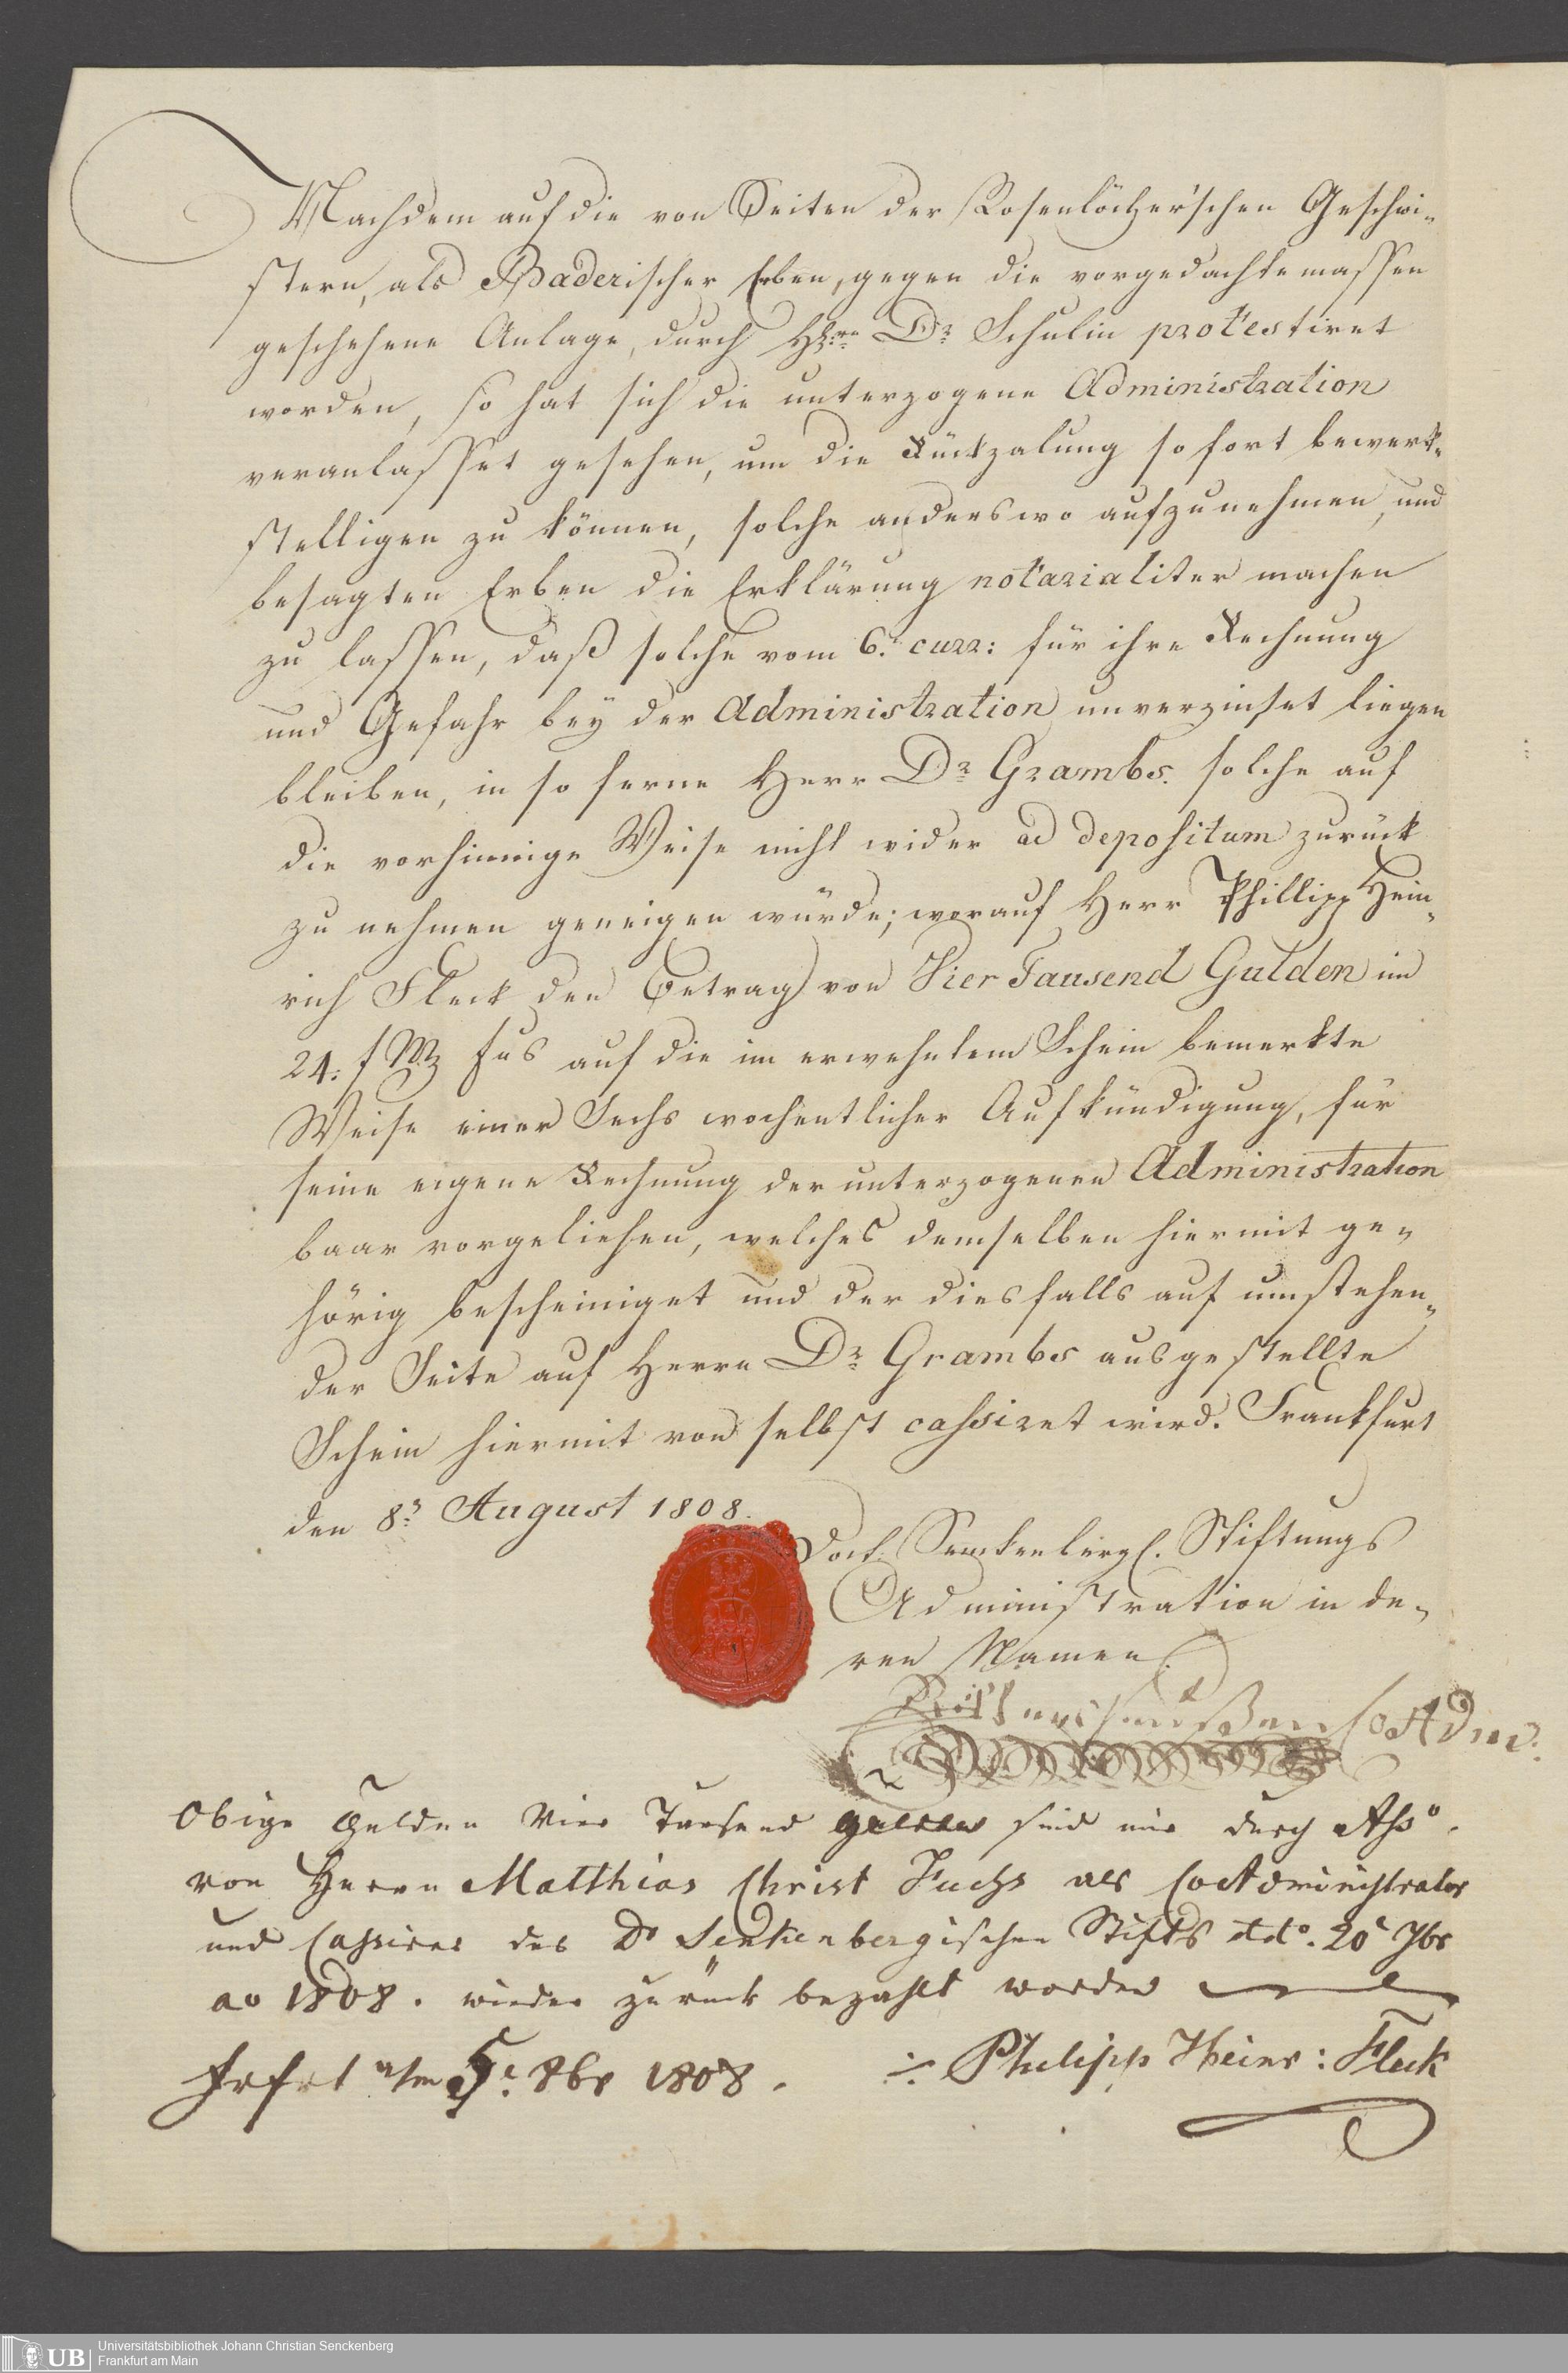 Nachdem auf die von Seiten der Rosenlöcher'schen Geschwi-
stern, als Baderischer Erben, gegen die vorgedachtemassen
geschehene Anlage, durch Hh:rn Dr Schulin protestiret
worden, so hat sich die unterzogene Administration
veranlasset gesehen, um die Rückzalung sofort bewerk-
stelligen zu können, solche anderswo aufzunehmen, und
besagten Erben die Erklärung notarialiter machen
zu lassen, daß solche vom 6.t curr: für ihre Rechnung
und Gefahr bey der Administration unverzinset liegen
bleiben, in so ferne Herr Dr Grambs. solche auf
die vorhinnige Weise nicht wider ad depositum zurück
zu nehmen geneigen würde; worauf Herr Phillipp Hein-
rich Fleck den Betrag von Vier Tausend Gulden im
24: f Mz fus auf die im erwehntem Schein bemerkte
Weise einer Sechs wochentlicher Aufkündigung, für
seine eigene Rechnung der unterzogenen Administration
baar vorgeliehen, welches demselben hiermit ge-
hörig bescheiniget und der diesfalls auf umstehen-
der Seite auf Herrn Dr Grambs ausgestellte
Schein hiermit von selbst cassiret wird. Frankfurt
den 8n August 1808.
Doct. Senckenbergl. Stiftungs
Administration in de-
ren Namen.
CoAdm.
Obige Gulden Vier Tausend sind mir durch Asso.
von Herrn Matthias Christ Fuchs als CoAdministrator
und Cassirer des Dr Senkenbergischen Stifts ddo. 20t 7br
ao 1808. wieder zurück bezahlt worden
Frfrt 5t 8br 1808. ÷ Philipp Heinr: Fleck
UB Universitätsbibliothek Johann Christian Senckenberg
Frankfurt am Main